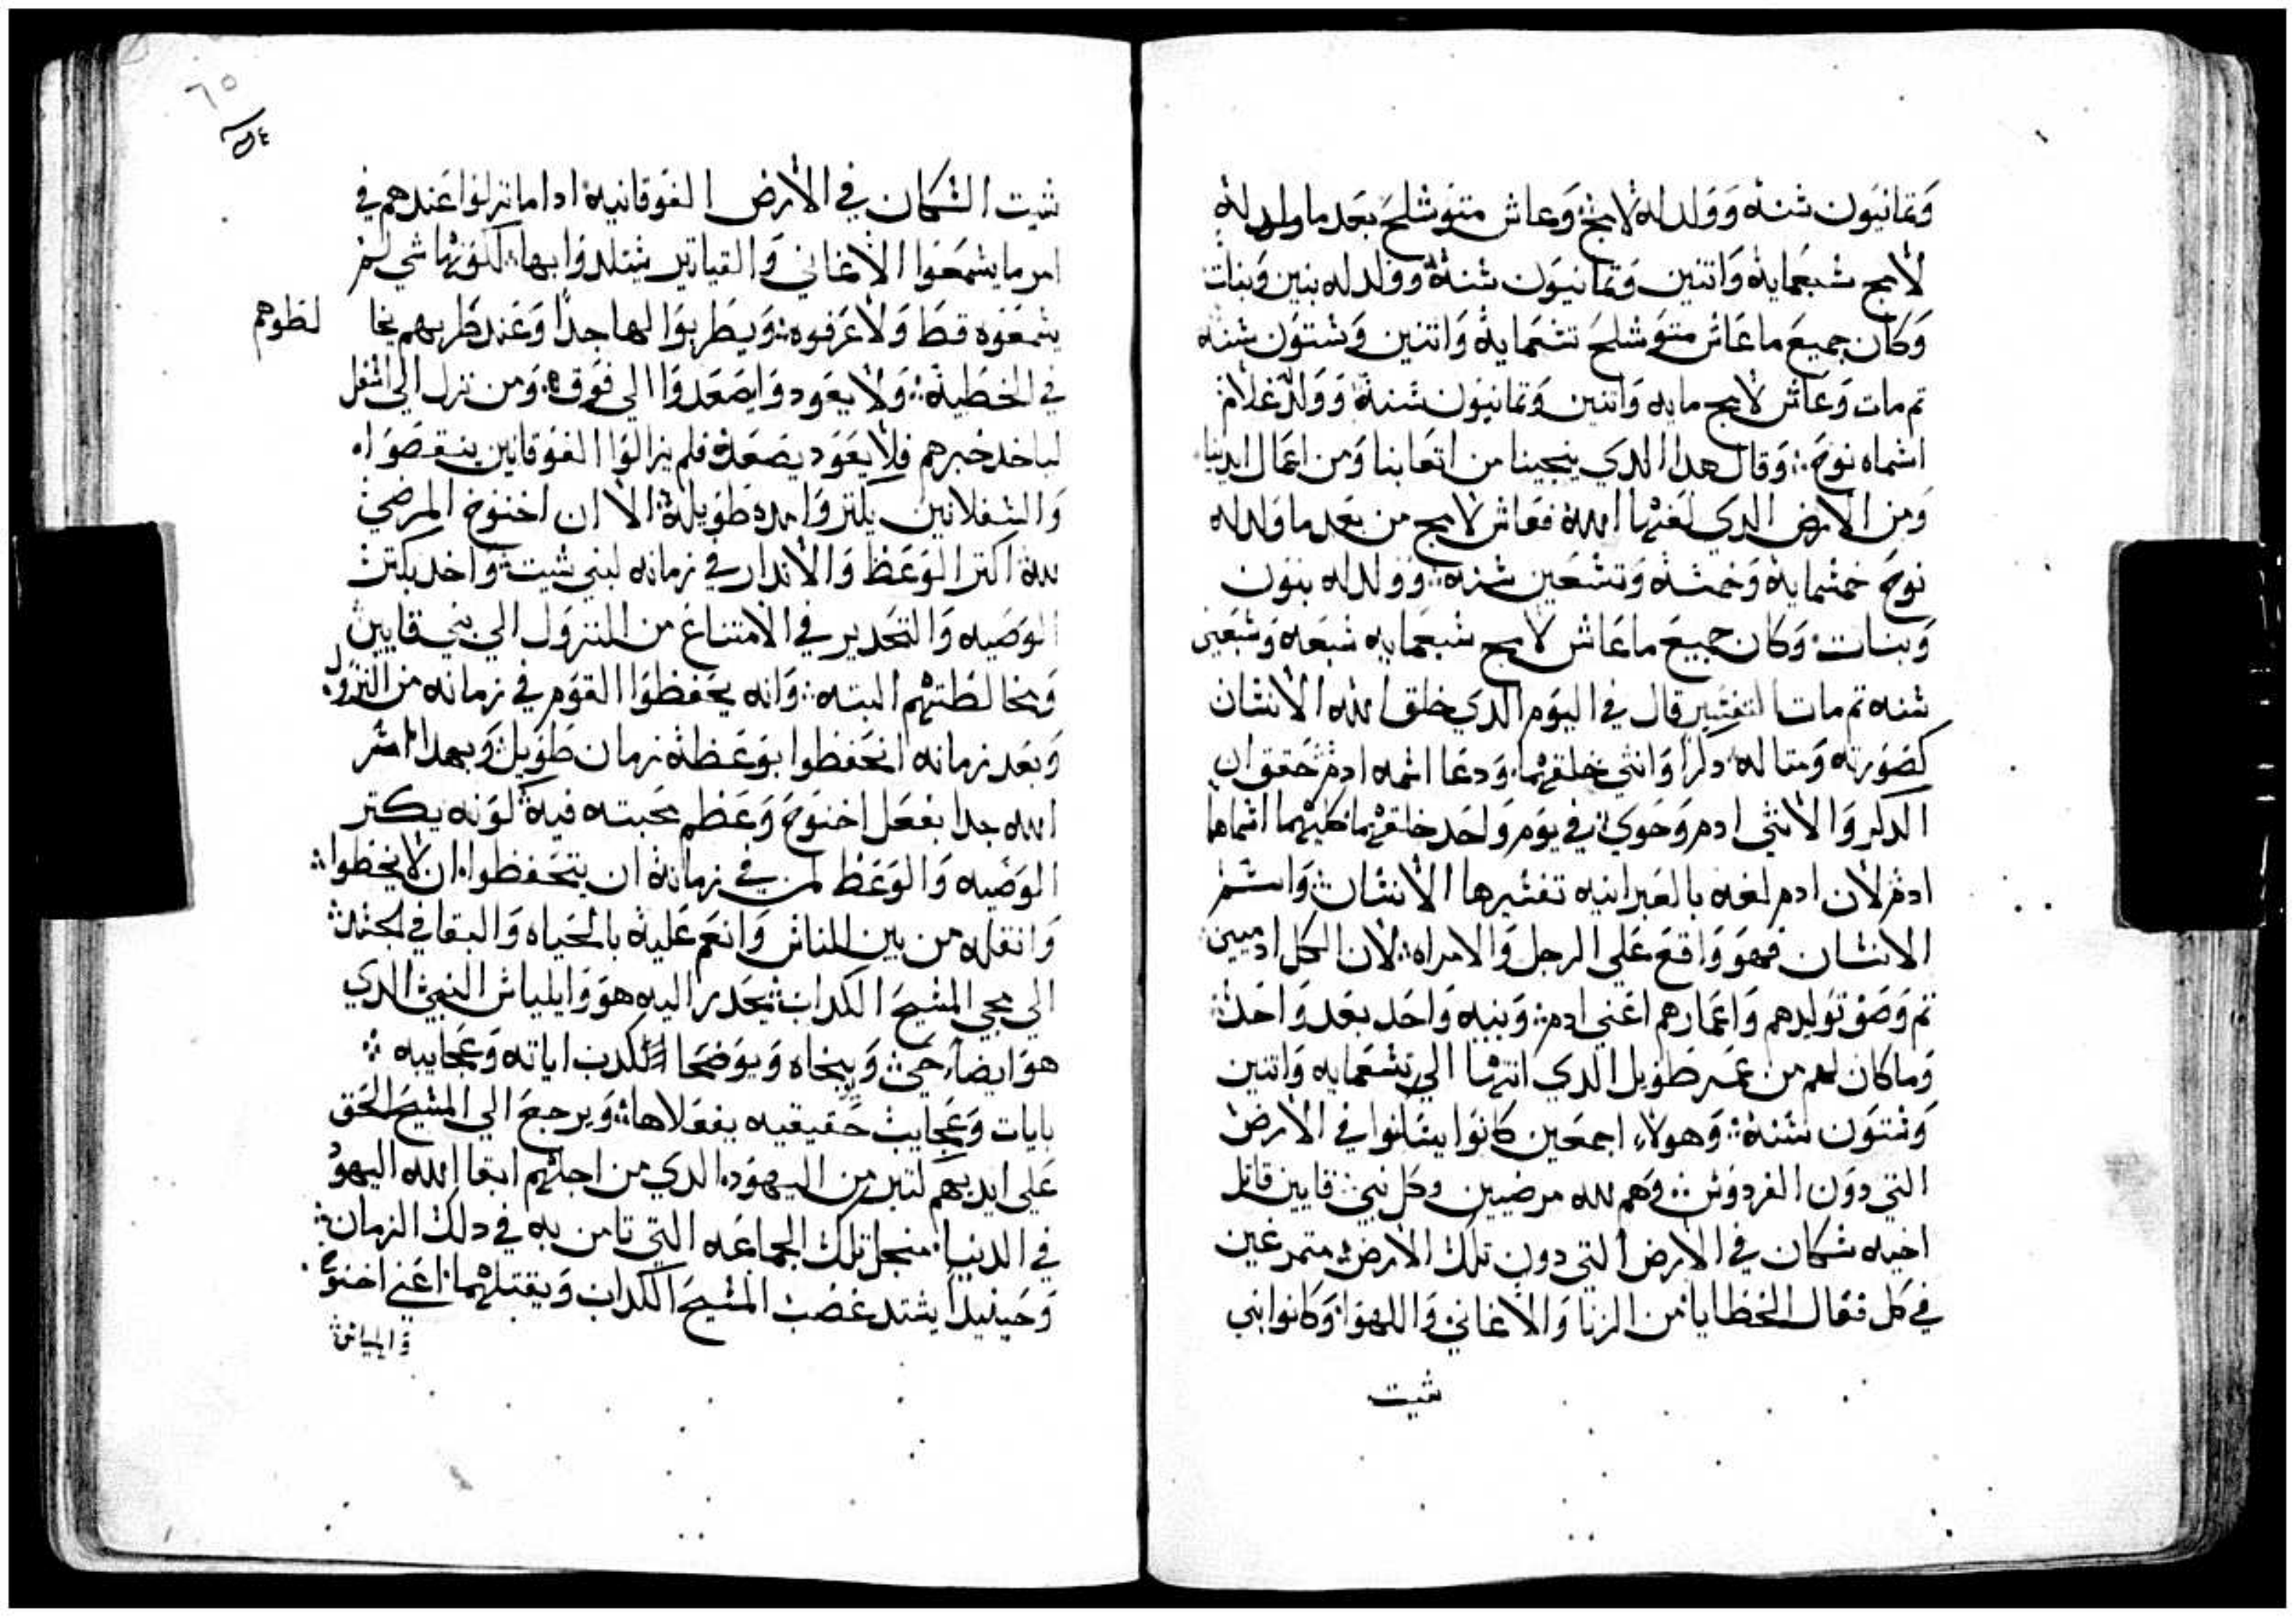 وتمانيون سنه وولد له لامخ وعاش متوشلح بعد ما ولد له
لامخ سبعمايه واتنين وتمانيون سنه وولد له بنين وبنات
وكان جميع ما عاش متوشلح تسعمايه واتنين وستون سنه
تم مات وعاش لامخ مايه واتنين وتمانيون سنه وولد غلام
اسماه نوح وقال هدا الدي ينجينا من اتعابنا ومن اعمال ايدينا
ومن الارض الدي لعنها الله فعاش لامخ من بعد ما ولد له
نوح خمسمايه وخمسه وتسعين سنه وولد له بنون
وبنات وكان جميع ما عاش لامخ سبعمايه سبعه وسبعين
سنه تم مات التفسير قال في اليوم الدي خلق الله الانسان
كصورته ومتاله دكرا وانتي خلقهما ودعا اسمه ادم حقق ان
الدكر والانتي ادم وحوي في يوم واحد خلقهما كليهما اسماهما
ادم لان ادم لغه بالعبرانيه تفسيرها الانسان واسم
الانسان فهو واقع علي الرجل والامراه لان الكل ادميين
تم وصف توليدهم واعمارهم اعني ادم وبنيه واحد بعد واحد
وما كان لهم من عمر طويل الدي انتها الي تسعمايه واتنين
وستون سنه وهولاء اجمعين كانوا يسكنوا في الارض
التي دون الفردوس وهم لله مرضيين وكل بني قايين قاتل
اخيه سكان في الارض التي دون تلك الارض متمرغين
في كل فعال الخطايا من الزنا والاغاني واللهو وكانوا بني
شيت
٦٥
٥٤
شيت السكان في الارض الفوقانيه ادا ما نزلوا عندهم في
امر ما يسمعوا الاغاني والقياتير يتلدوا بها كونها شي لم
يسمعوه قط ولا عرفوه ويطربوا لها جدا وعند طربهم يخا لطوهم
في الخطيه ولا يعودوا يصعدوا الي فوق ومن نزل الي اسفل
لياخد خبرهم فلا يعود يصعد فلم يزالوا الفوقانين ينقصوا
والسفلانين يكتروا مده طويله الا ان اخنوخ المرضي
لله اكتر الوعظ والاندار في زمانه لبني شيت واخد يكتر
الوصيه والتحدير في الامتناع من النزول الي بني قايين
ومخالطتهم البته وانه يحفظوا القوم في زمانه من النزول
وبعد زمانه انحفظوا بوعظه زمان طويل وبهدا اسر
الله جدا بفعل اخنوخ وعظم محبته فيه كونه يكتر
الوصيه والوعظ لمن في زمانه ان يتحفظوا ان لا يخطوا
وانقله من بين الناس وانعم عليه بالحياه والبقا في الجسد
الي مجي المسيح الكداب يحدر اليه هو وايلياس النبي الدي
هو ايضا حي ويبخاه ويوضحا الكدب اياته وعجايبه
بايات وعجايب حقيقيه يفعلاها ويرجع الي المسيح الحق
علي ايديهم كتير من اليهود الدي من اجلهم ابقا الله اليهود
في الدنيا منجل تلك الجماعه التي تامن به في دلك الزمان
وحينيدا يشتد غضب المسيح الكداب ويقتلهما اعني اخنوخ
وايلياس